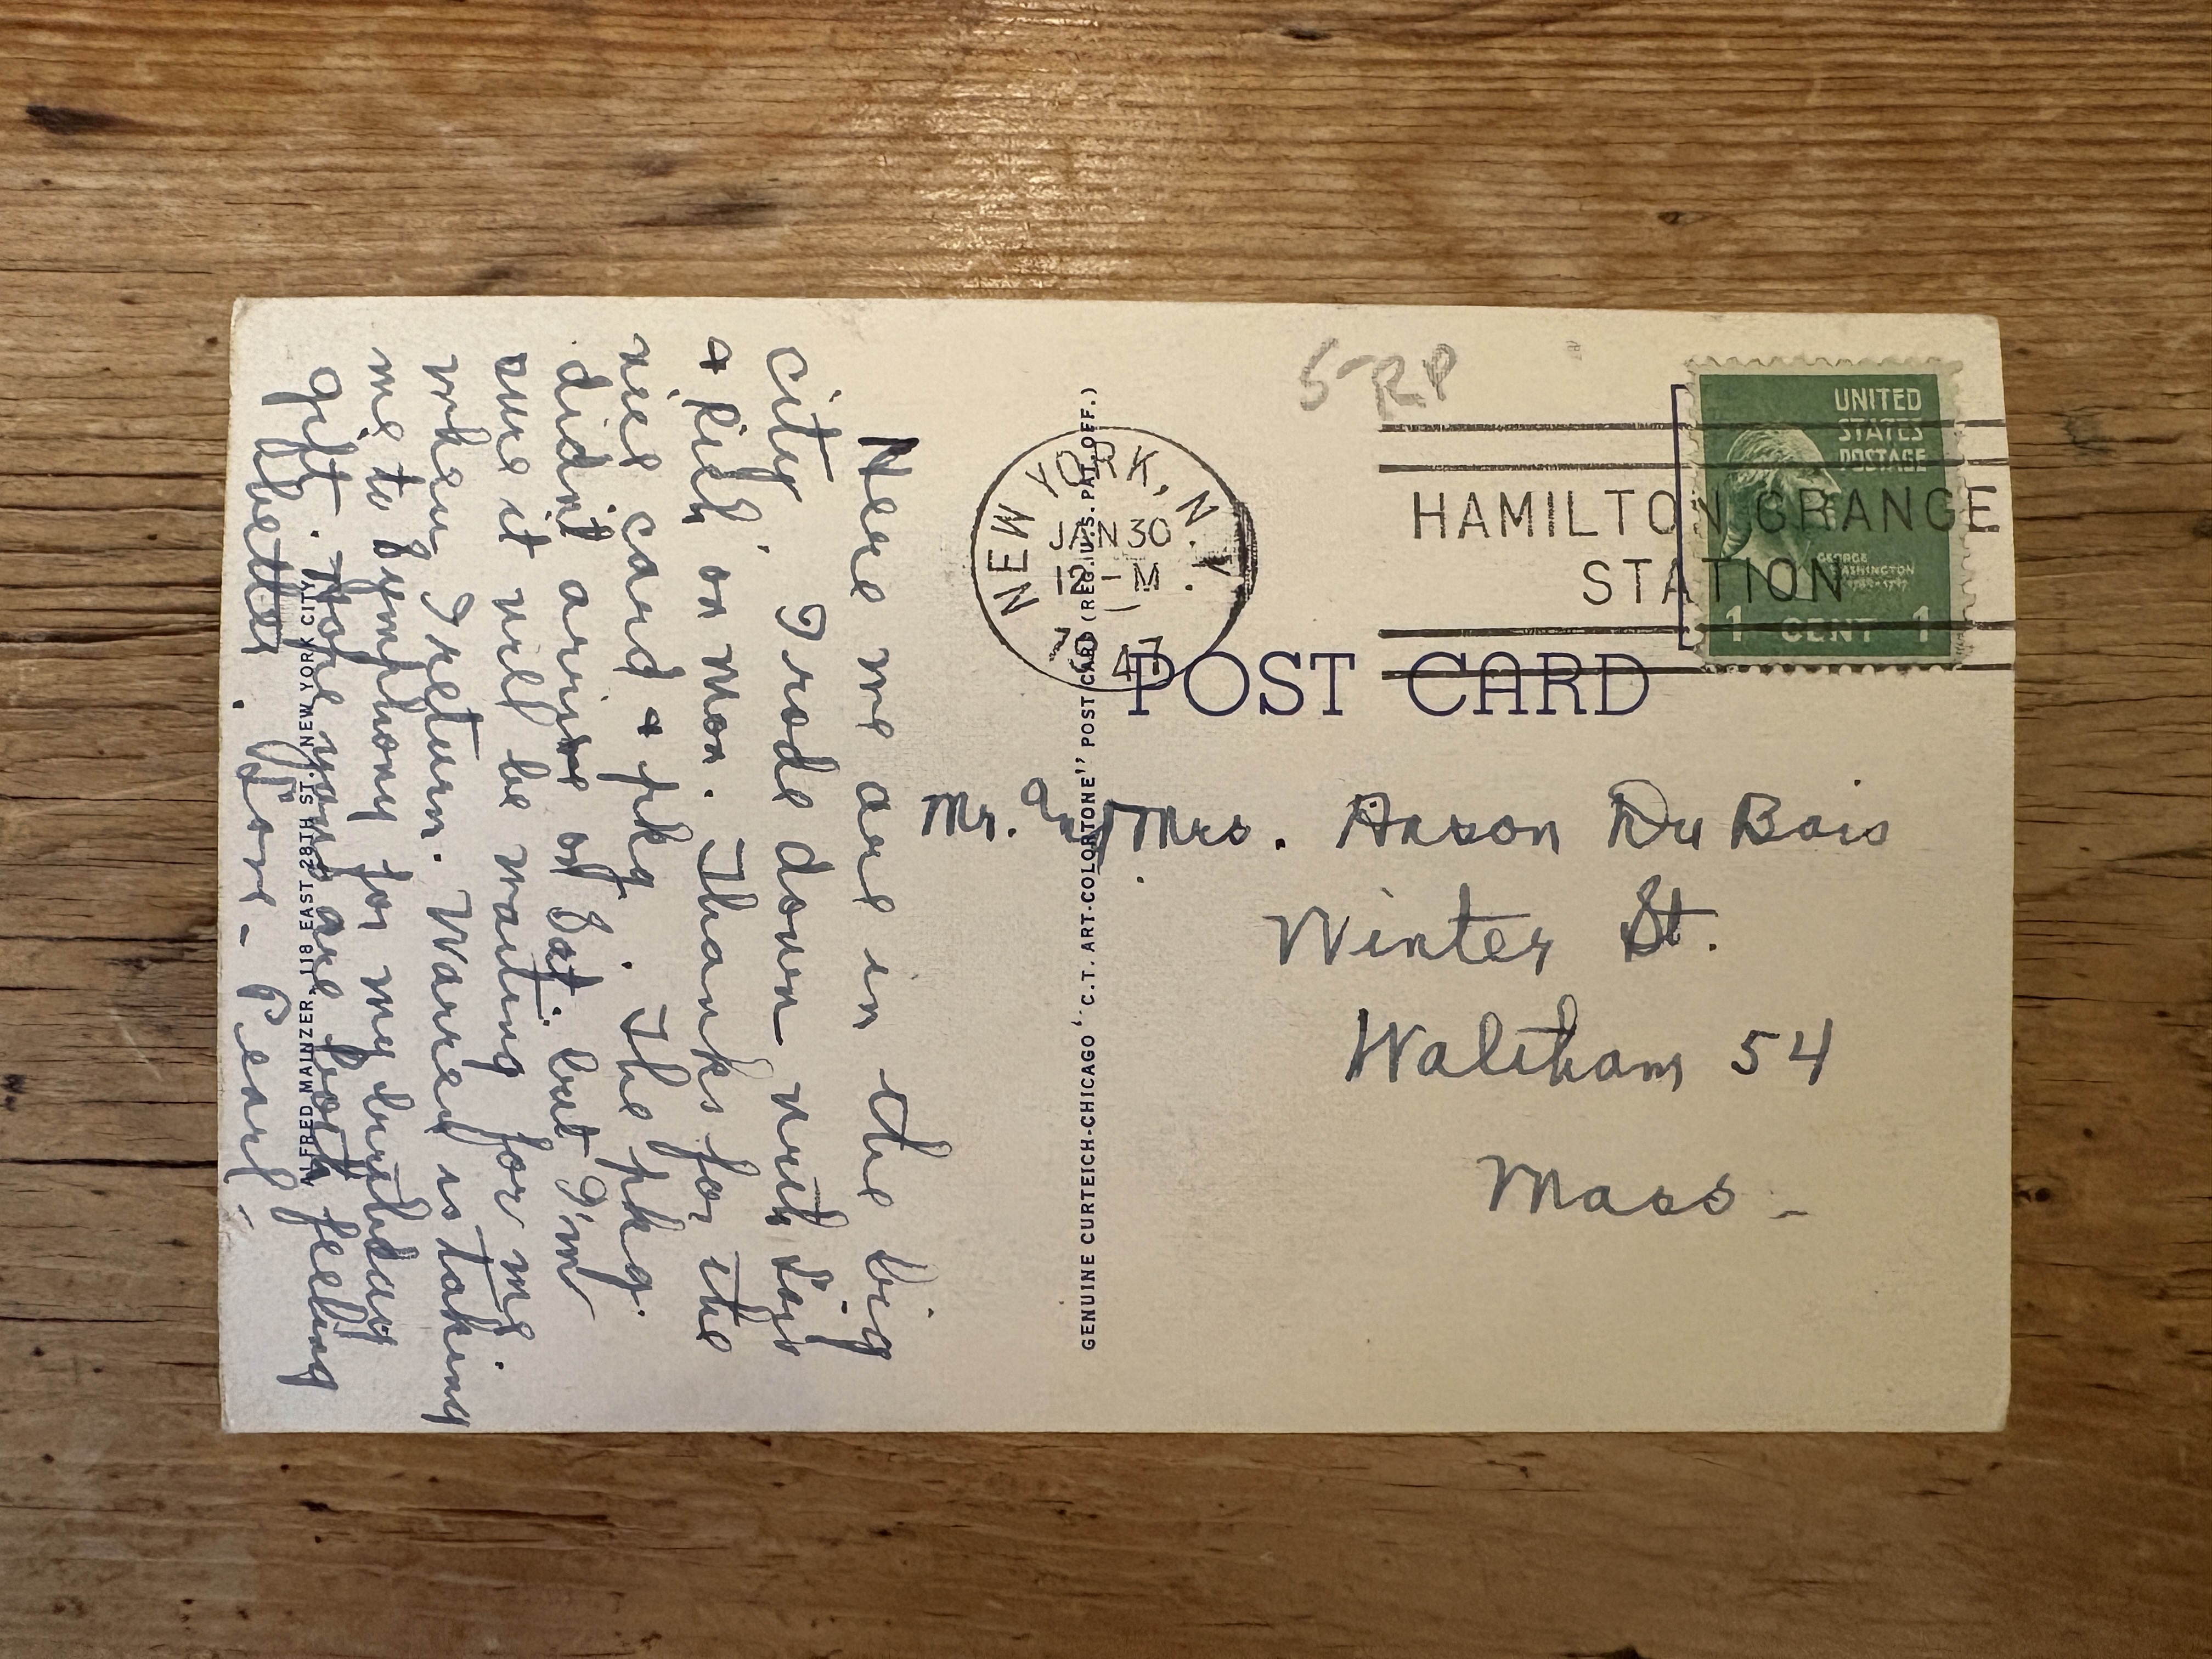 Here we are in the big
city. I rode down with Syb
& Rich on Mon. Thanks for the
nice card & pkg. The pkg.
didn't arrive by Sat. but I'm
sure it will be waiting for me
when I return. Warren is taking
me to Symphony for my birthday
gift. Hope you are both feeling
better. Love - Pearl -
ALFRED MAINZER, 118 EAST 28TH ST. NEW YORK CITY
GENUINE CURTEICH-CHICAGO "C.T. ART-COLORTONE" POST CARD (REG. U.S. PAT. OFF.)
5 RP
NEW YORK, N.Y.
JAN 30
12 - M
1947
HAMILTON GRANGE
STATION
UNITED
STATES
POSTAGE
GEORGE
WASHINGTON
1789-1797
1 CENT 1
POST CARD
Mr. and Mrs. Anson Du Bois
Winter St.
Waltham 54
Mass -